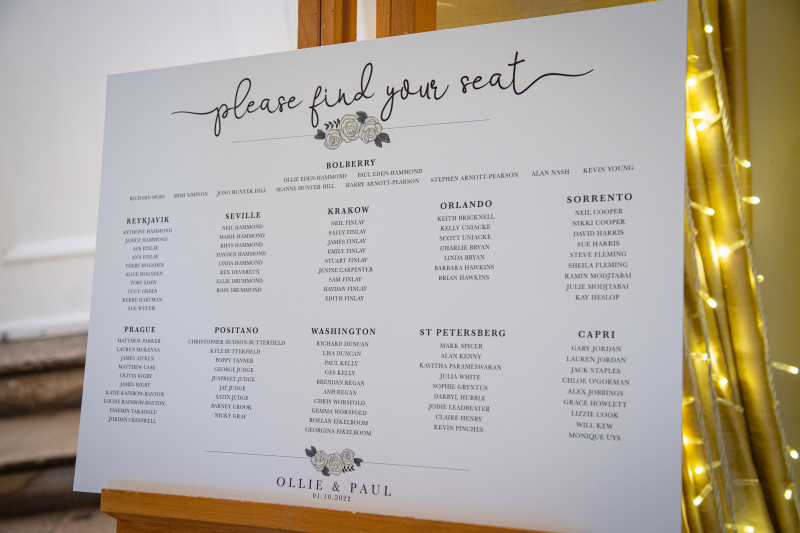 please find your seat
BOLBERRY
OLLIE EDEN-HAMMOND PAUL EDEN-HAMMOND
RICHARD MOSS MIMI SIMPSON JONO HUNTER HILL SEANNE HUNTER HILL HARRY ARNOTT-PEARSON STEPHEN ARNOTT-PEARSON ALAN NASH KEVIN YOUNG
REYKJAVIK
ANTHONY HAMMOND
JANICE HAMMOND
IAN FINLAY
ANN FINLAY
TERRY HOGSDEN
ALICE HOGSDEN
TOBY EDEN
LUCY GREEN
KERRY HARTMAN
SUE WYETH
SEVILLE
NEIL HAMMOND
MARIE HAMMOND
RHYS HAMMOND
HAYDEN HAMMOND
LINDA HAMMOND
REX DEVEREUX
ELLIE DRUMMOND
ROSS DRUMMOND
KRAKOW
NEIL FINLAY
SALLY FINLAY
JAMES FINLAY
EMILY FINLAY
STUART FINLAY
JENINE CARPENTER
SAM FINLAY
HAYDAN FINLAY
EDITH FINLAY
ORLANDO
KEITH BRICKNELL
KELLY UNIACKE
SCOTT UNIACKE
CHARLIE BRYAN
LINDA BRYAN
BARBARA HAWKINS
BRIAN HAWKINS
SORRENTO
NEIL COOPER
NIKKI COOPER
DAVID HARRIS
SUE HARRIS
STEVE FLEMING
SHEILA FLEMING
RAMIN MODJTABAI
JULIE MODJTABAI
KAY HESLOP
PRAGUE
MATTHEW PARKER
LAUREN MCKENNA
JAMES AITKEN
MATTHEW CASE
OLIVIA RIGBY
JAMES RIGBY
KATIE RAINBOW-BANTON
LOUISE RAINBOW-BANTON
YASEMIN TAKAOGLU
JORDAN CRESSWELL
POSITANO
CHRISTOPHER HUDSON-BUTTERFIELD
KYLE BUTTERFIELD
POPPY TANNER
GEORGE JUDGE
JUSPREET JUDGE
JAY JUDGE
SATIN JUDGE
BARNEY CROOK
NICKY GRAF
WASHINGTON
RICHARD DUNCAN
LISA DUNCAN
PAUL KELLY
GES KELLY
BRENDAN REGAN
ANH REGAN
CHRIS WORSFOLD
GEMMA WORSFOLD
ROELAN EIKELBOOM
GEORGINA EIKELBOOM
ST PETERSBERG
MARK SPICER
ALAN KENNY
KAVITHA PARAMESWARAN
JULIA WHITE
SOPHIE GRYNTUS
DARRYL HUBBLE
JODIE LEADBEATER
CLAIRE HENRY
KEVIN PINCHES
CAPRI
GARY JORDAN
LAUREN JORDAN
JACK STAPLES
CHLOE O'GORMAN
ALEX JOBBINGS
GRACE HOWLETT
LIZZIE COOK
WILL KEW
MONIQUE UYS
OLLIE & PAUL
01.10.2022